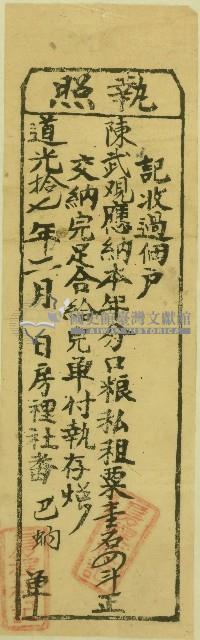 執照
記收過佃戶
陳武观應納本年分口粮私租粟壹石四斗正
交納完足合給完单付執存炤
道光拾七年二月 日房裡社番 巴炯 单
國史館臺灣文獻館
TAIWAN HISTORICA